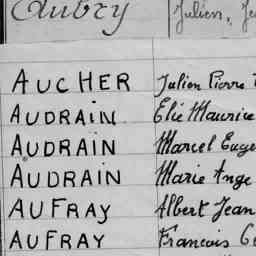 Aubry Julien, Je
AUCHER Julien Pierre
AUDRAIN Elie Maurice
AUDRAIN Marcel Euge
AUDRAIN Marie Ange
AUFRAY Albert Jean
AUFRAY Francois